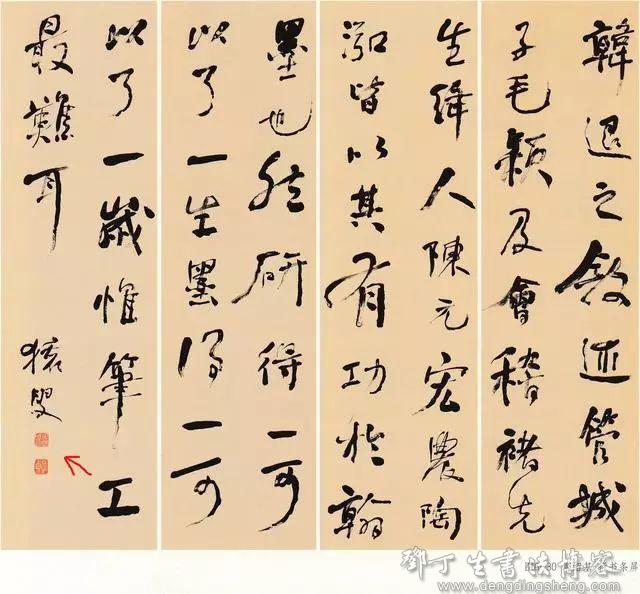 韓退之敘述管城
子毛穎及會稽褚先
生絳人陳元宏農陶
泓皆以其有功於翰
墨也然研得一可
以了一生墨得一可
以了一歲惟筆工
最難耳
猿叟
书条屏
鄧丁生書法博客
www.dengdingsheng.com